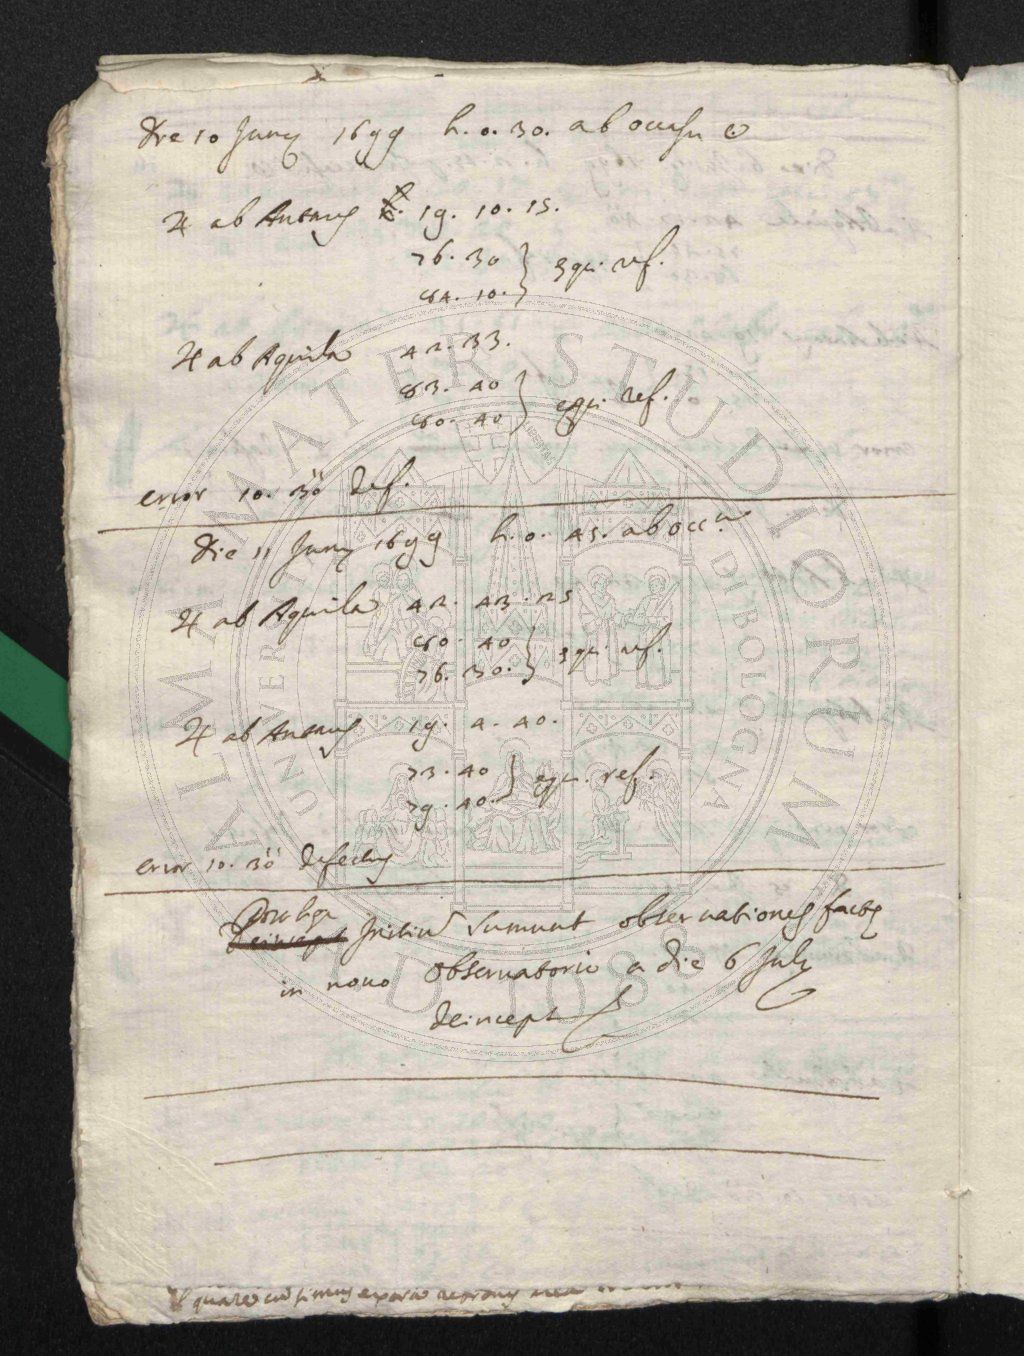 Die 10 Junij 1699 h. 0. 30. ab occasu ☉
♃ ab Antares 19. 10. 15.
76. 30
84. 10. } equi. ref.
♃ ab Aquila 42. 33.
83. 40
80. 40 } equi. ref.
error 10. 30" def.
Die 11 Junij 1699 h. 0. 45. ab occu
♃ ab Aquila 42. 43. 25
80. 40
76. 30. } equi. ref.
♃ ab Antares 19. 4. 40.
73. 40
79. 40. } equi. ref.
error 10. 30" defectus
Initiu sumunt observationes factę
in novo Observatorio a die 6 Julij
deinceps
ALMA MATER STUDIORUM
UNIVERSITÀ DI BOLOGNA
A.D. 1088